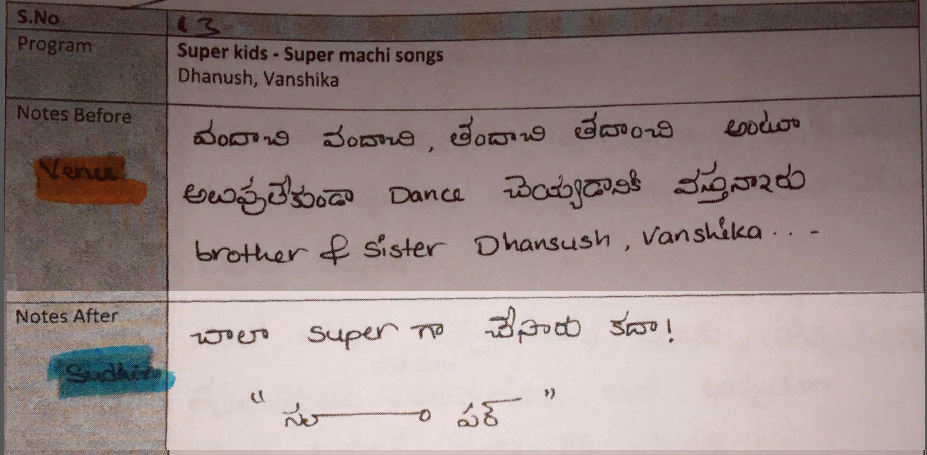 S.No 13
Program
Super kids - Super machi songs
Dhanush, Vanshika
Notes Before
వందాచి వందాచి, తేందాచి తేదాంచి అంటూ
Venu
అలుపులేకుండా Dance చెయ్యడానికి వస్తున్నారు
brother & sister Dhansush, Vanshika...-
Notes After
చాలా super గా చేసారు కదా!
Sudhir
" సూ———ం పర్ "